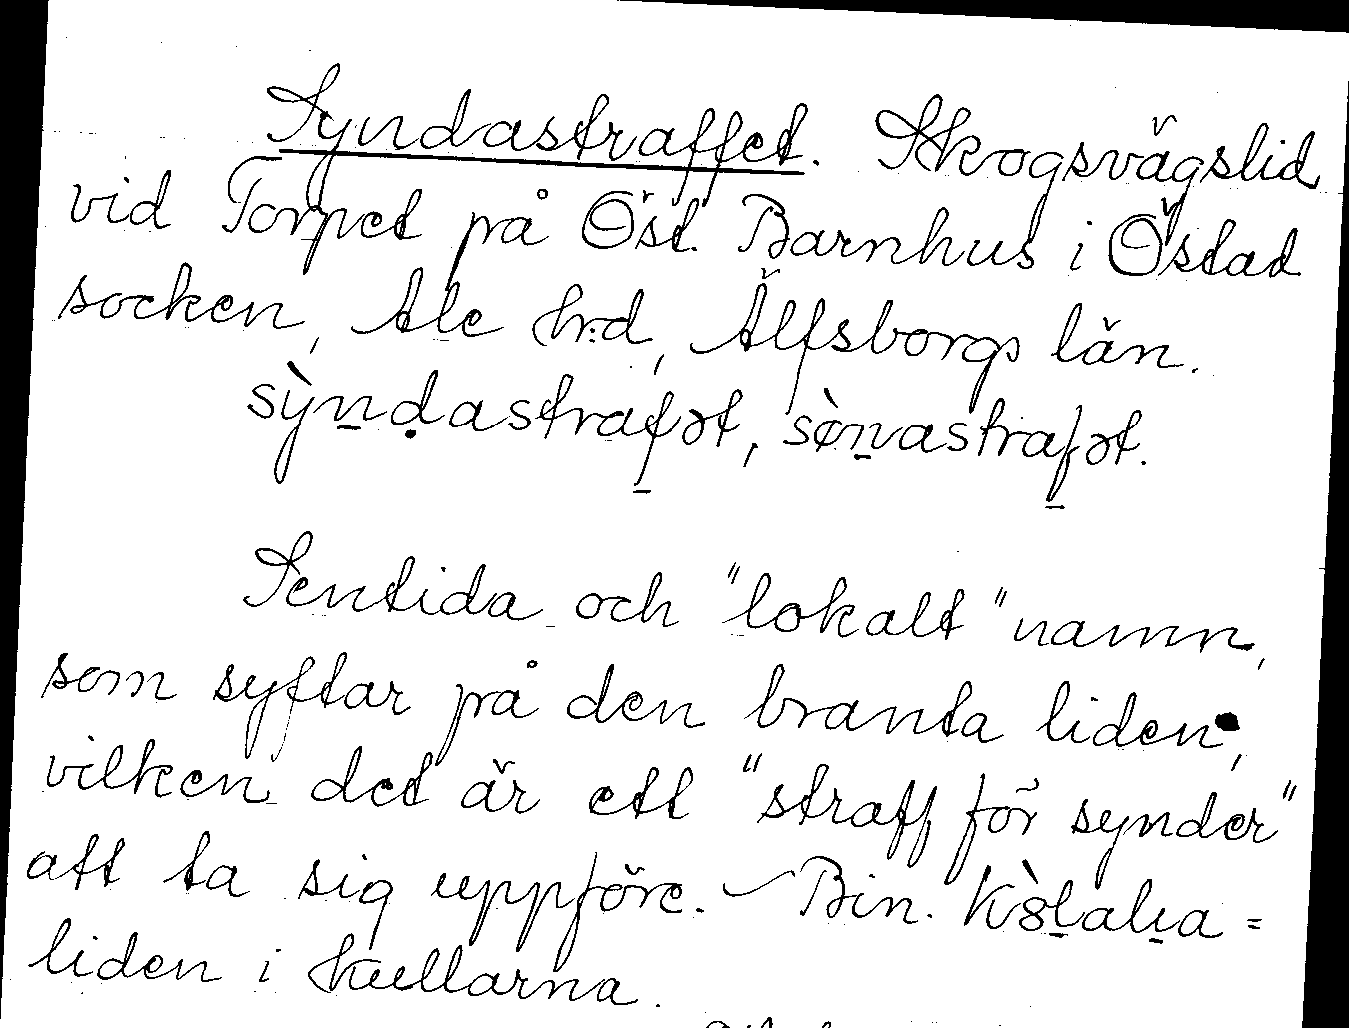 Syndastraffet. Skogsvägslid
vid Torpet på Öst. Barnhus i Östad
socken, Ale hrd, Älfsborgs län.
sỳndastrafət, sø̀nastrafət.
Sentida och "lokalt" namn,
som syftar på den branta liden,
vilken det är ett "straff för synder"
att ta sig uppföre. – Bin.
liden i Kullarna.